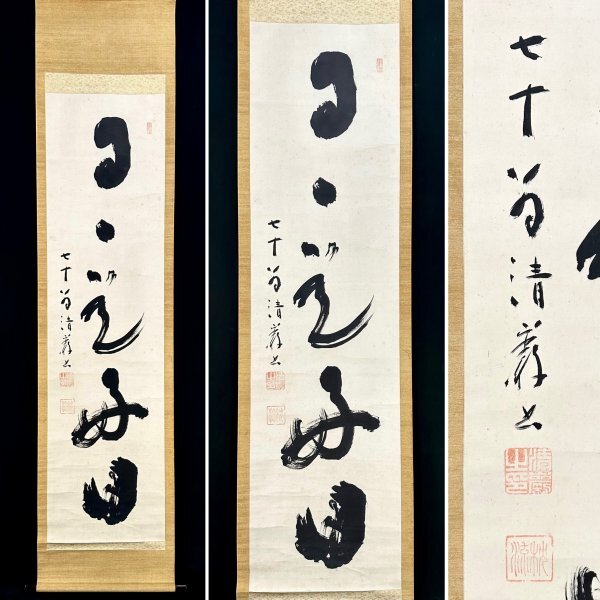 日々是好日
七十翁清書
日々是好日
七十翁清書
七十翁清書